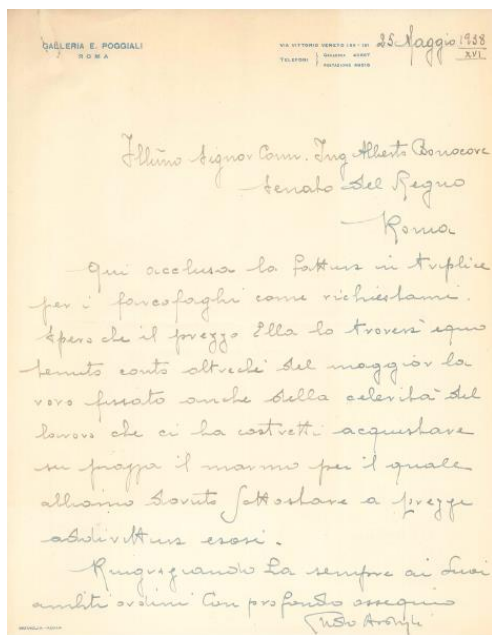 GALLERIA E. POGGIALI
ROMA
VIA VITTORIO VENETO
TELEFONI
25 Maggio 1938
XVI
Ill.mo Signor Com. Ing Alberto Bonacore
Senato del Regno
Roma
Qui acclusa la fattura in triplice
per i sarcofaghi come richiestami.
Spero che il prezzo Ella lo troverà equo
tenuto conto altrechè del maggior la
voro fissato anche della celerità del
lavoro che ci ha costretti acquistare
su piazza il marmo per il quale
abbiamo dovuto sottostare a prezzi
addirittura esosi.
RingraziandoLa sempre ai Suoi
ambiti ordini Con profondo ossequio